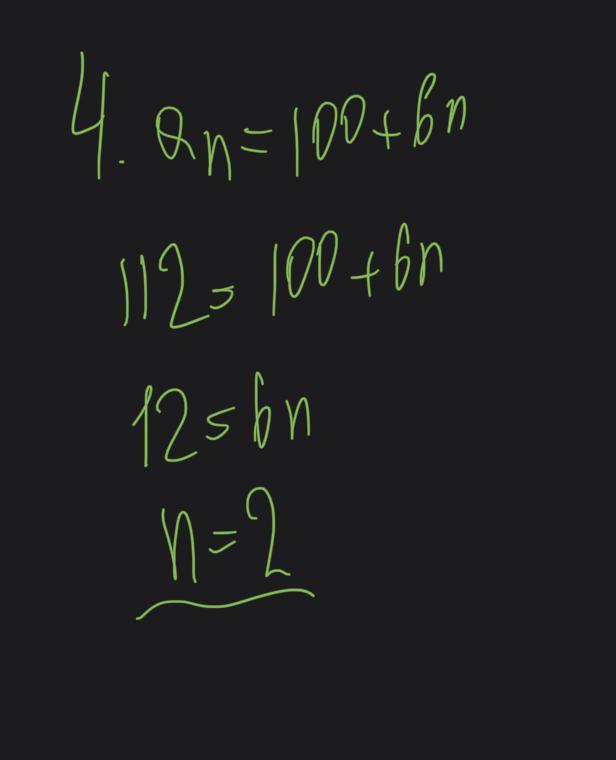 4. an=100+6n
112=100+6n
12=6n
n=2